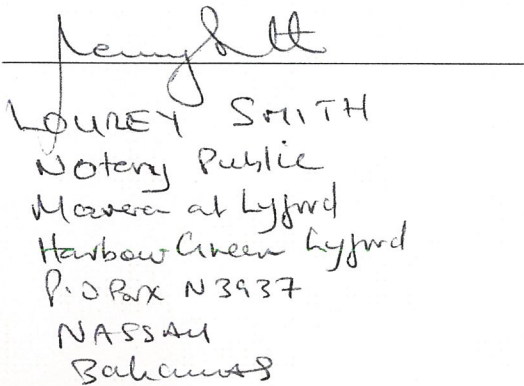 LOUREY SMITH
Notary Public
at Lyford
Harbour Green Lyford
P.O Box N3937
NASSAU
Bahamas